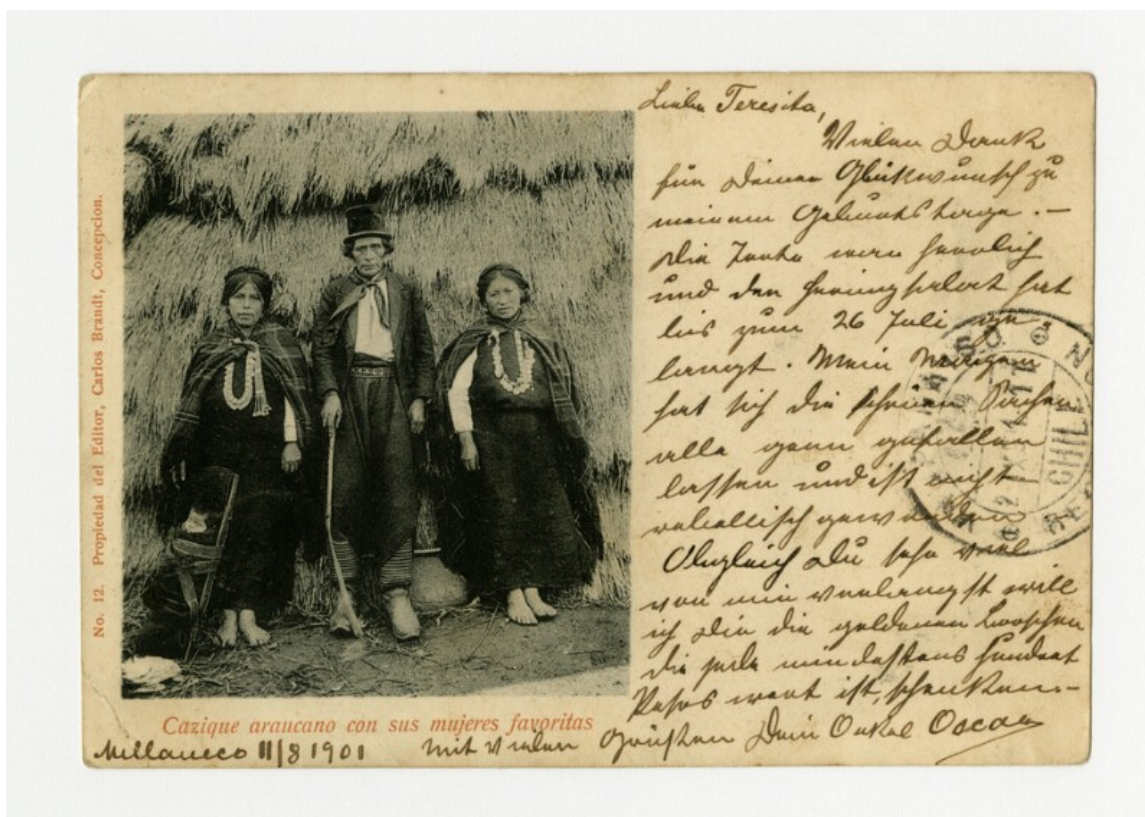 No. 12. Propiedad del Editor, Carlos Brandt, Concepcion.
Cazique araucano con sus mujeres favoritas
Liebe Teresita,
Vielen Dank
für Deinen Glückwunsch zu
meinem Geburtstage. —
Die Torte war herrlich
und der Heringsalat hat
bis zum 26 Juli ge-
langt. Mein Magen
hat sich die schönen Sachen
alle gern gefallen
lassen und ist nicht
rebellisch geworden
Obgleich Du sehr viel
von mir verlangst will
ich Dir die goldenen
die jede mindestens hundert
Pesos wert ist, schenken. —
Mit Vielen Grüßen Dein Onkel Oscar
11/8 1901
CHILE